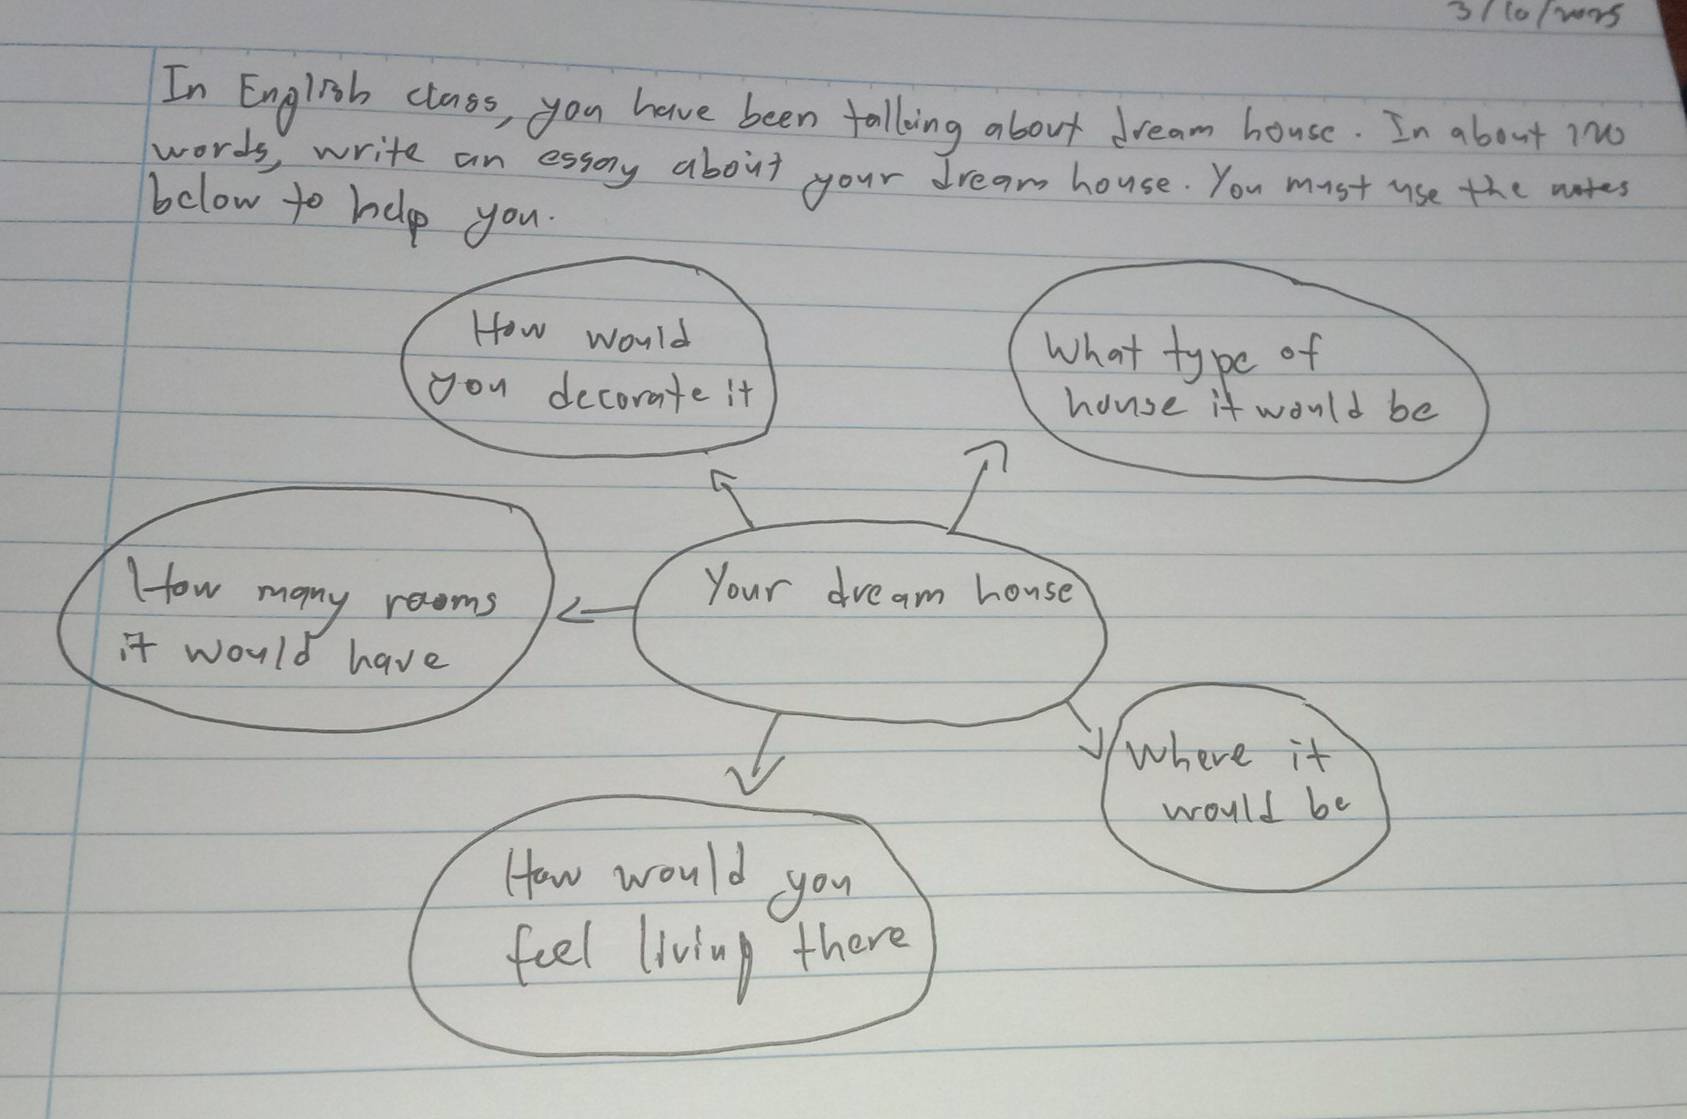 3/10/2025
In English class, you have been talking about dream house. In about 120
words, write an essay about your dream house. You must use the notes
below to help you.
How would
you decorate it
What type of
house it would be
How many rooms
it would have
Your dream house
Where it
would be
How would you
feel living there